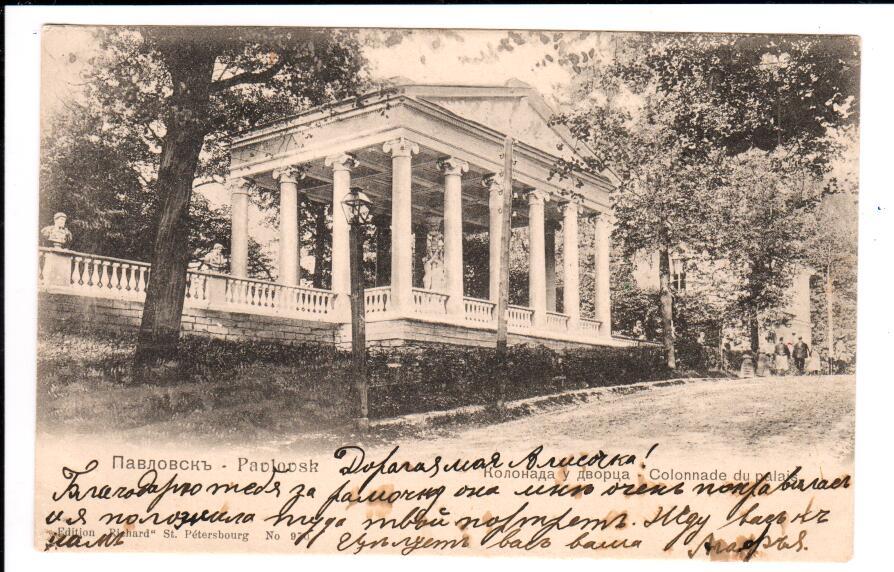 Павловскъ - Pavlovsk
Колонада у дворца - Colonnade du palais
Дорогая моя Алисочка!
Благодарю тебя за рамочку она мнѣ очень понравилась
и я положила туда твой портретъ. Жду васъ къ
намъ Цѣлуетъ васъ ваша Агафья.
Edition „Richard“ St. Pétersbourg No